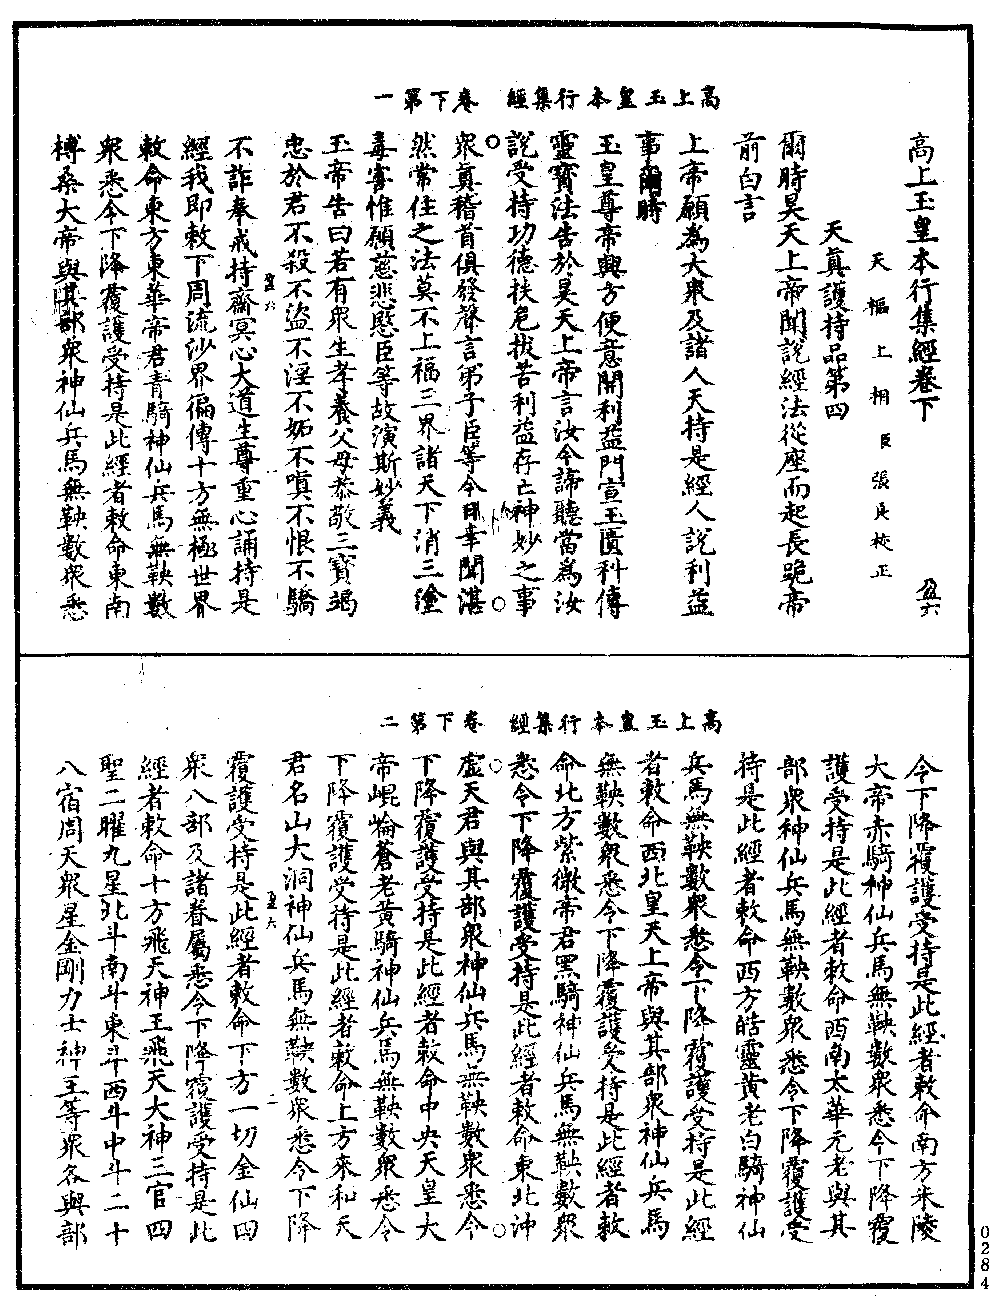 高上玉皇本行集經　卷下第一
高上玉皇本行集經卷下
天樞上相臣張良校正
天真護持品第四
爾時昊天上帝聞說經法從座而起長跪帝
前白言
上帝願為大衆及諸人天持是經人說利益
事爾時
玉皇尊帝興方便意開利益門宣玉匱科傳
靈寶法告於昊天上帝言汝今諦聽當為汝
說受持功德扶危拔苦利益存亡神妙之事
衆真稽首俱發聲言弟子臣等今日幸聞湛
然常住之法莫不上福三界諸天下消三塗
毒害惟願慈悲愍臣等故演斯妙義
玉帝告曰若有衆生孝養父母恭敬三寶竭
忠於君不殺不盜不淫不妬不嗔不恨不驕
不詐奉戒持齋冥心大道生尊重心誦持是
經我即敕下周流沙界徧傳十方無極世界
敕命東方東華帝君青騎神仙兵馬無鞅數
衆悉令下降覆護受持是此經者敕命東南
榑桑大帝與其部衆神仙兵馬無鞅數衆悉
高上玉皇本行集經　卷下第二
令下降覆護受持是此經者敕命南方朱陵
大帝赤騎神仙兵馬無鞅數衆悉令下降覆
護受持是此經者敕命西南太華元老與其
部衆神仙兵馬無鞅數衆悉令下降覆護受
持是此經者敕命西方皓靈黃老白騎神仙
兵馬無鞅數衆悉令下降覆護受持是此經
者敕命西北皇天上帝與其部衆神仙兵馬
無鞅數衆悉令下降覆護受持是此經者敕
命北方紫微帝君黑騎神仙兵馬無鞅數衆
悉令下降覆護受持是此經者敕命東北沖
虛天君與其部衆神仙兵馬無鞅數衆悉令
下降覆護受持是此經者敕命中央天皇大
帝崐崙蒼老黃騎神仙兵馬無鞅數衆悉令
下降覆護受持是此經者敕命上方來和天
君名山大洞神仙兵馬無鞅數衆悉令下降
覆護受持是此經者敕命下方一切金仙四
衆八部及諸眷屬悉令下降覆護受持是此
經者敕命十方飛天神王飛天大神三官四
聖二曜九星北斗南斗東斗西斗中斗二十
八宿周天衆星金剛力士神王等衆各與部
0284